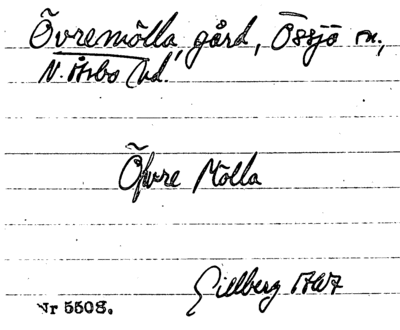 Övremölla, gård, Össjö sn.,
N. Åsbo hd.
Öfvre Mölla
Gillberg
Nr 5508.